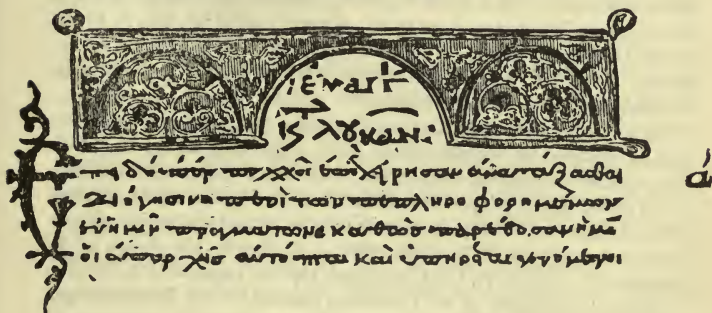 εὐαγγ
κς λουκᾶν:
Ἐπειδήπερ πολλοὶ ἐπεχείρησαν ἀνατάξασθαι
διήγησιν περὶ τῶν πεπληροφορημένων
ἐν ἡμῖν πραγμάτων· καθὼς παρέδοσαν ἡμῖν
οἱ ἀπαρχῆς αὐτόπται καὶ ὑπηρέται γενόμενοι